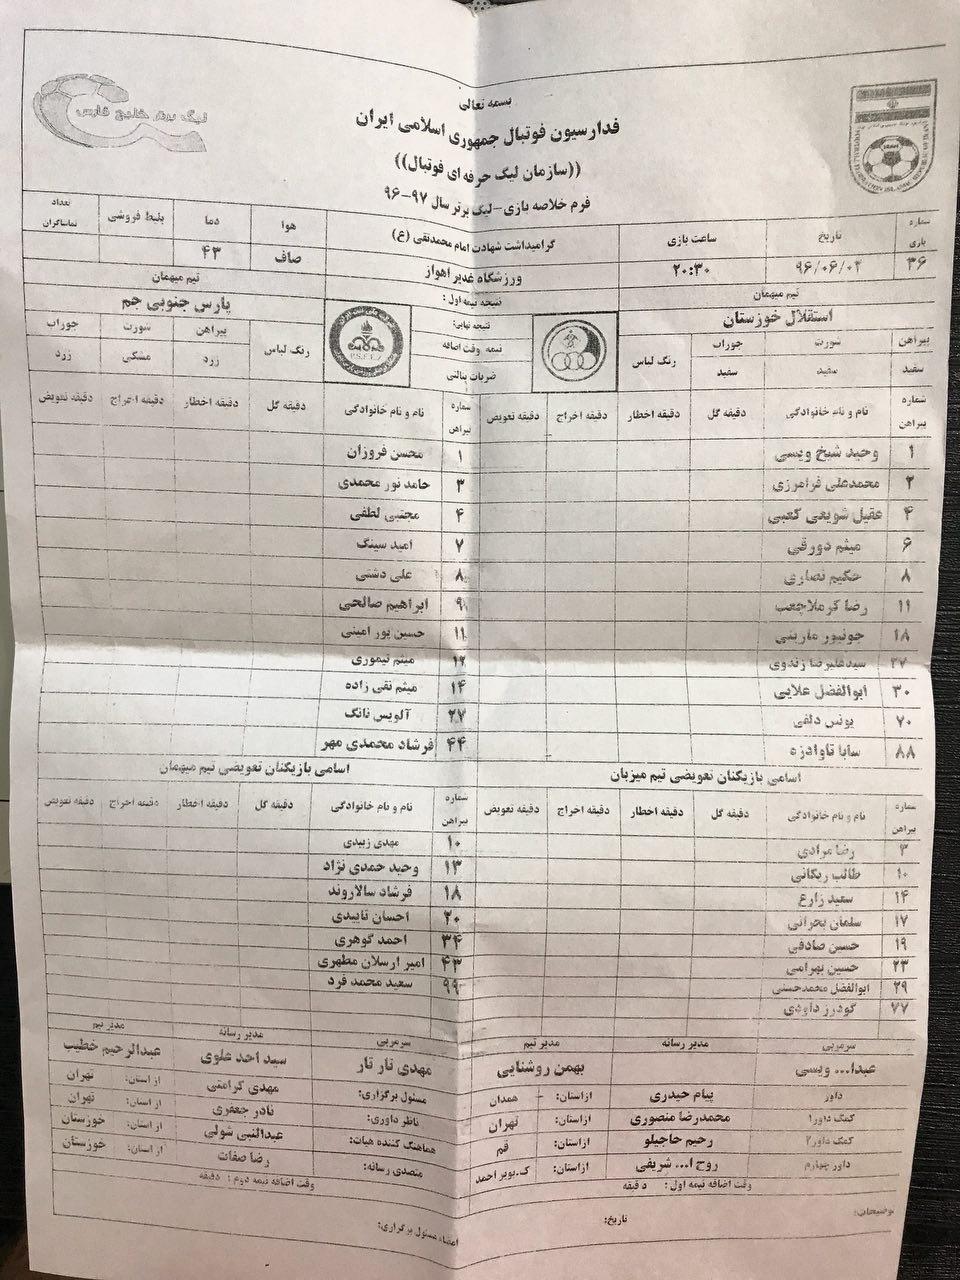 بسمه تعالی
فدراسیون فوتبال جمهوری اسلامی ایران
((سازمان لیگ حرفه ای فوتبال))
فرم خلاصه بازی-لیگ برتر سال ۹۷-۹۶
لیگ برتر خلیج فارس
شماره بازی تاریخ ساعت بازی گرامیداشت شهادت امام محمدتقی (ع) هوا دما بلیط فروشی تعداد تماشاگران
۳۶ ۹۶/۰۶/۰۲ ۲۰:۳۰ ورزشگاه غدیر اهواز صاف ۴۳
تیم میهمان نتیجه نیمه اول: تیم میهمان
استقلال خوزستان نتیجه نهایی: پارس جنوبی جم
پیراهن شورت جوراب رنگ لباس نیمه وقت اضافه رنگ لباس پیراهن شورت جوراب
سفید سفید سفید ضربات پنالتی زرد مشکی زرد
P.S.F.F.Z
شماره پیراهن نام و نام خانوادگی دقیقه گل دقیقه اخطار دقیقه اخراج دقیقه تعویض شماره پیراهن نام و نام خانوادگی دقیقه گل دقیقه اخطار دقیقه اخراج دقیقه تعویض
۱ وحید شیخ ویسی ۱ محسن فروزان
۲ محمدعلی فرامرزی ۳ حامد نور محمدی
۴ عقیل شویعی کعبی ۴ مجتبی لطفی
۶ میثم دورقی ۷ امید سینگ
۸ حکیم نصاری ۸ علی دشتی
۱۱ رضا کرملاچعب ۹ ابراهیم صالحی
۱۸ جونیور مارینی ۱۱ حسین پور امینی
۲۷ سیدعلیرضا زندوی ۱۲ میثم تیموری
۳۰ ابوالفضل علایی ۱۴ میثم نقی زاده
۷۰ یونس دلفی ۲۷ آلویس نانگ
۸۸ سابا تاوادزه ۴۴ فرشاد محمدی مهر
اسامی بازیکنان تعویضی تیم میزبان اسامی بازیکنان تعویضی تیم میهمان
شماره پیراهن نام و نام خانوادگی دقیقه گل دقیقه اخطار دقیقه اخراج دقیقه تعویض شماره پیراهن نام و نام خانوادگی دقیقه گل دقیقه اخطار دقیقه اخراج دقیقه تعویض
۳ رضا مرادی ۱۰ مهدی زبیدی
۱۰ طالب ریکانی ۱۳ وحید حمدی نژاد
۱۴ سعید زارع ۱۸ فرشاد سالاروند
۱۷ سلمان بحرانی ۲۰ احسان نابیدی
۱۹ حسین صادقی ۳۴ احمد گوهری
۲۳ حسین بهرامی ۴۳ امیر ارسلان مطهری
۲۹ ابوالفضل محمدحسنی ۹۹ سعید محمد فرد
۷۷ گودرز داودی
سرمربی مدیر رسانه مدیر تیم سرمربی مدیر رسانه مدیر تیم
عبدا... ویسی بهمن روشنایی مهدی تار تار سید احد علوی عبدالرحیم خطیب
داور پیام حیدری ازاستان: همدان مسئول برگزاری: مهدی کرامتی از استان: تهران
کمک داور۱ محمدرضا منصوری ازاستان: تهران ناظر داوری: نادر جعفری از استان: تهران
کمک داور۲ رحیم حاجیلو ازاستان: قم هماهنگ کننده هیات: عبدالنبی شولی از استان: خوزستان
داور چهارم روح ا... شریفی ازاستان: ک.بویر احمد متصدی رسانه: رضا صفات از استان: خوزستان
وقت اضافه نیمه اول: دقیقه وقت اضافه نیمه دوم: دقیقه
توضیحات:
تاریخ: امضاء مسئول برگزاری: